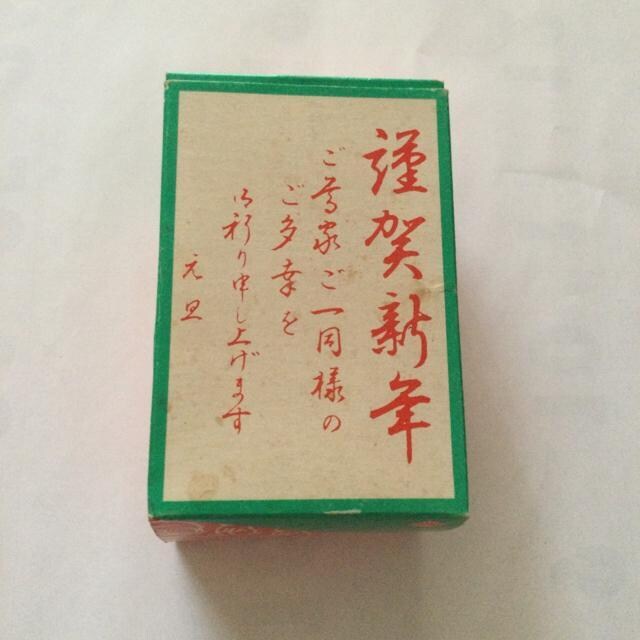 謹賀新年
ご尊家ご一同様の
ご多幸を
御祈り申し上げます
元旦